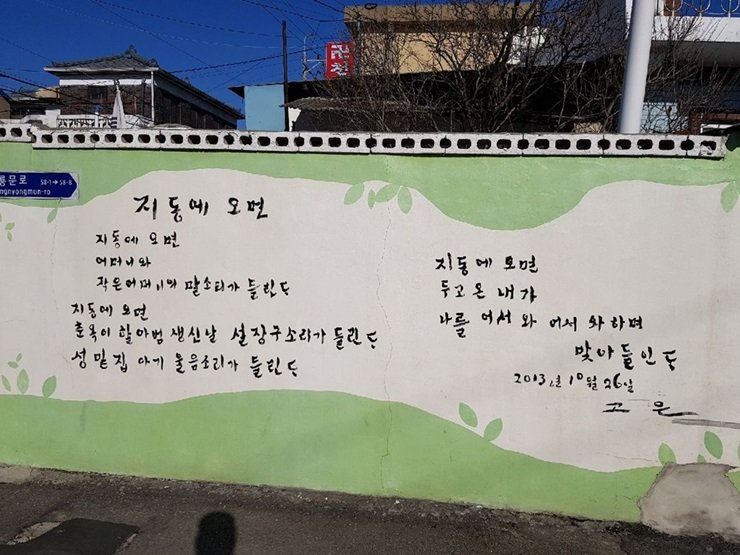 룡문로 58-1→58-8
ngnyongmun-ro
지동에 오면
지동에 오면
어머니와
작은어머니의 말소리가 들린다
지동에 오면
춘옥이 할아범 생신날 설장구소리가 들린다
성 밑 집 아기 울음소리가 들린다
지동에 오면
두고 온 내가
나를 어서 와 어서 와 하며
맞아들인다
2013년 10월 26일
고 은